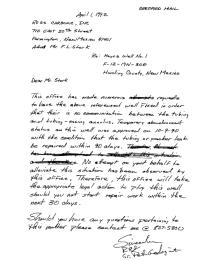 CERTIFIED MAIL
April 1, 1992
Ross Carbonic, Inc
710 East 20th Street
Farmington, New Mexico 87401
Attn: Mr F L Stark
Re: House Well No. 1
F-12-19N-30E
Harding County, New Mexico
Dear Mr Stark
This office has made numerous requests
to have the above referenced well fixed in order
that there is no communication between the tubing
and tubing - casing annulus. Temporary abandonment
status on this well was approved on 10-9-90
with the condition that the tubing or packer leak
be repaired within 90 days.
No attempt on your behalf to
alleviate this situation has been observed by
this office. Therefore, this office will take
the appropriate legal action to plug this well
should you not start repair work within the
next 30 days.
Should you have any questions pertaining to
this matter please contact me @ 827-5810
Sincerely